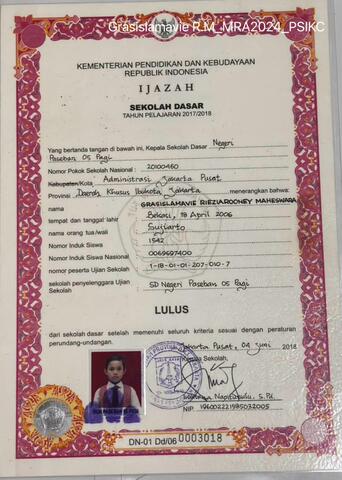 Grasislamavie R.M_MRA2024_PSIKC
KEMENTERIAN PENDIDIKAN DAN KEBUDAYAAN
REPUBLIK INDONESIA
IJAZAH
SEKOLAH DASAR
TAHUN PELAJARAN 2017/2018
Yang bertanda tangan di bawah ini, Kepala Sekolah Dasar Negeri
Paseban 05 Pagi
Nomor Pokok Sekolah Nasional : 20100460
Kabupaten/Kota Administrasi Jakarta Pusat
Provinsi Daerah Khusus Ibukota Jakarta menerangkan bahwa:
nama GRASISLAMAVIE RIEZIAROONEY MAHESWARA
tempat dan tanggal lahir Bekasi, 18 April 2006
nama orang tua/wali Sugiarto
Nomor Induk Siswa 1542
Nomor Induk Siswa Nasional 0069697400
nomor peserta Ujian Sekolah 1-18-01-01-207-010-7
sekolah penyelenggara Ujian Sekolah SD Negeri Paseban 05 Pagi
LULUS
dari sekolah dasar setelah memenuhi seluruh kriteria sesuai dengan peraturan
perundang-undangan.
Jakarta Pusat, 04 Juni 2018
Kepala Sekolah,
Napitupulu, S.Pd.
NIP 196002221985032005
DN-01 Dd/06 0003018